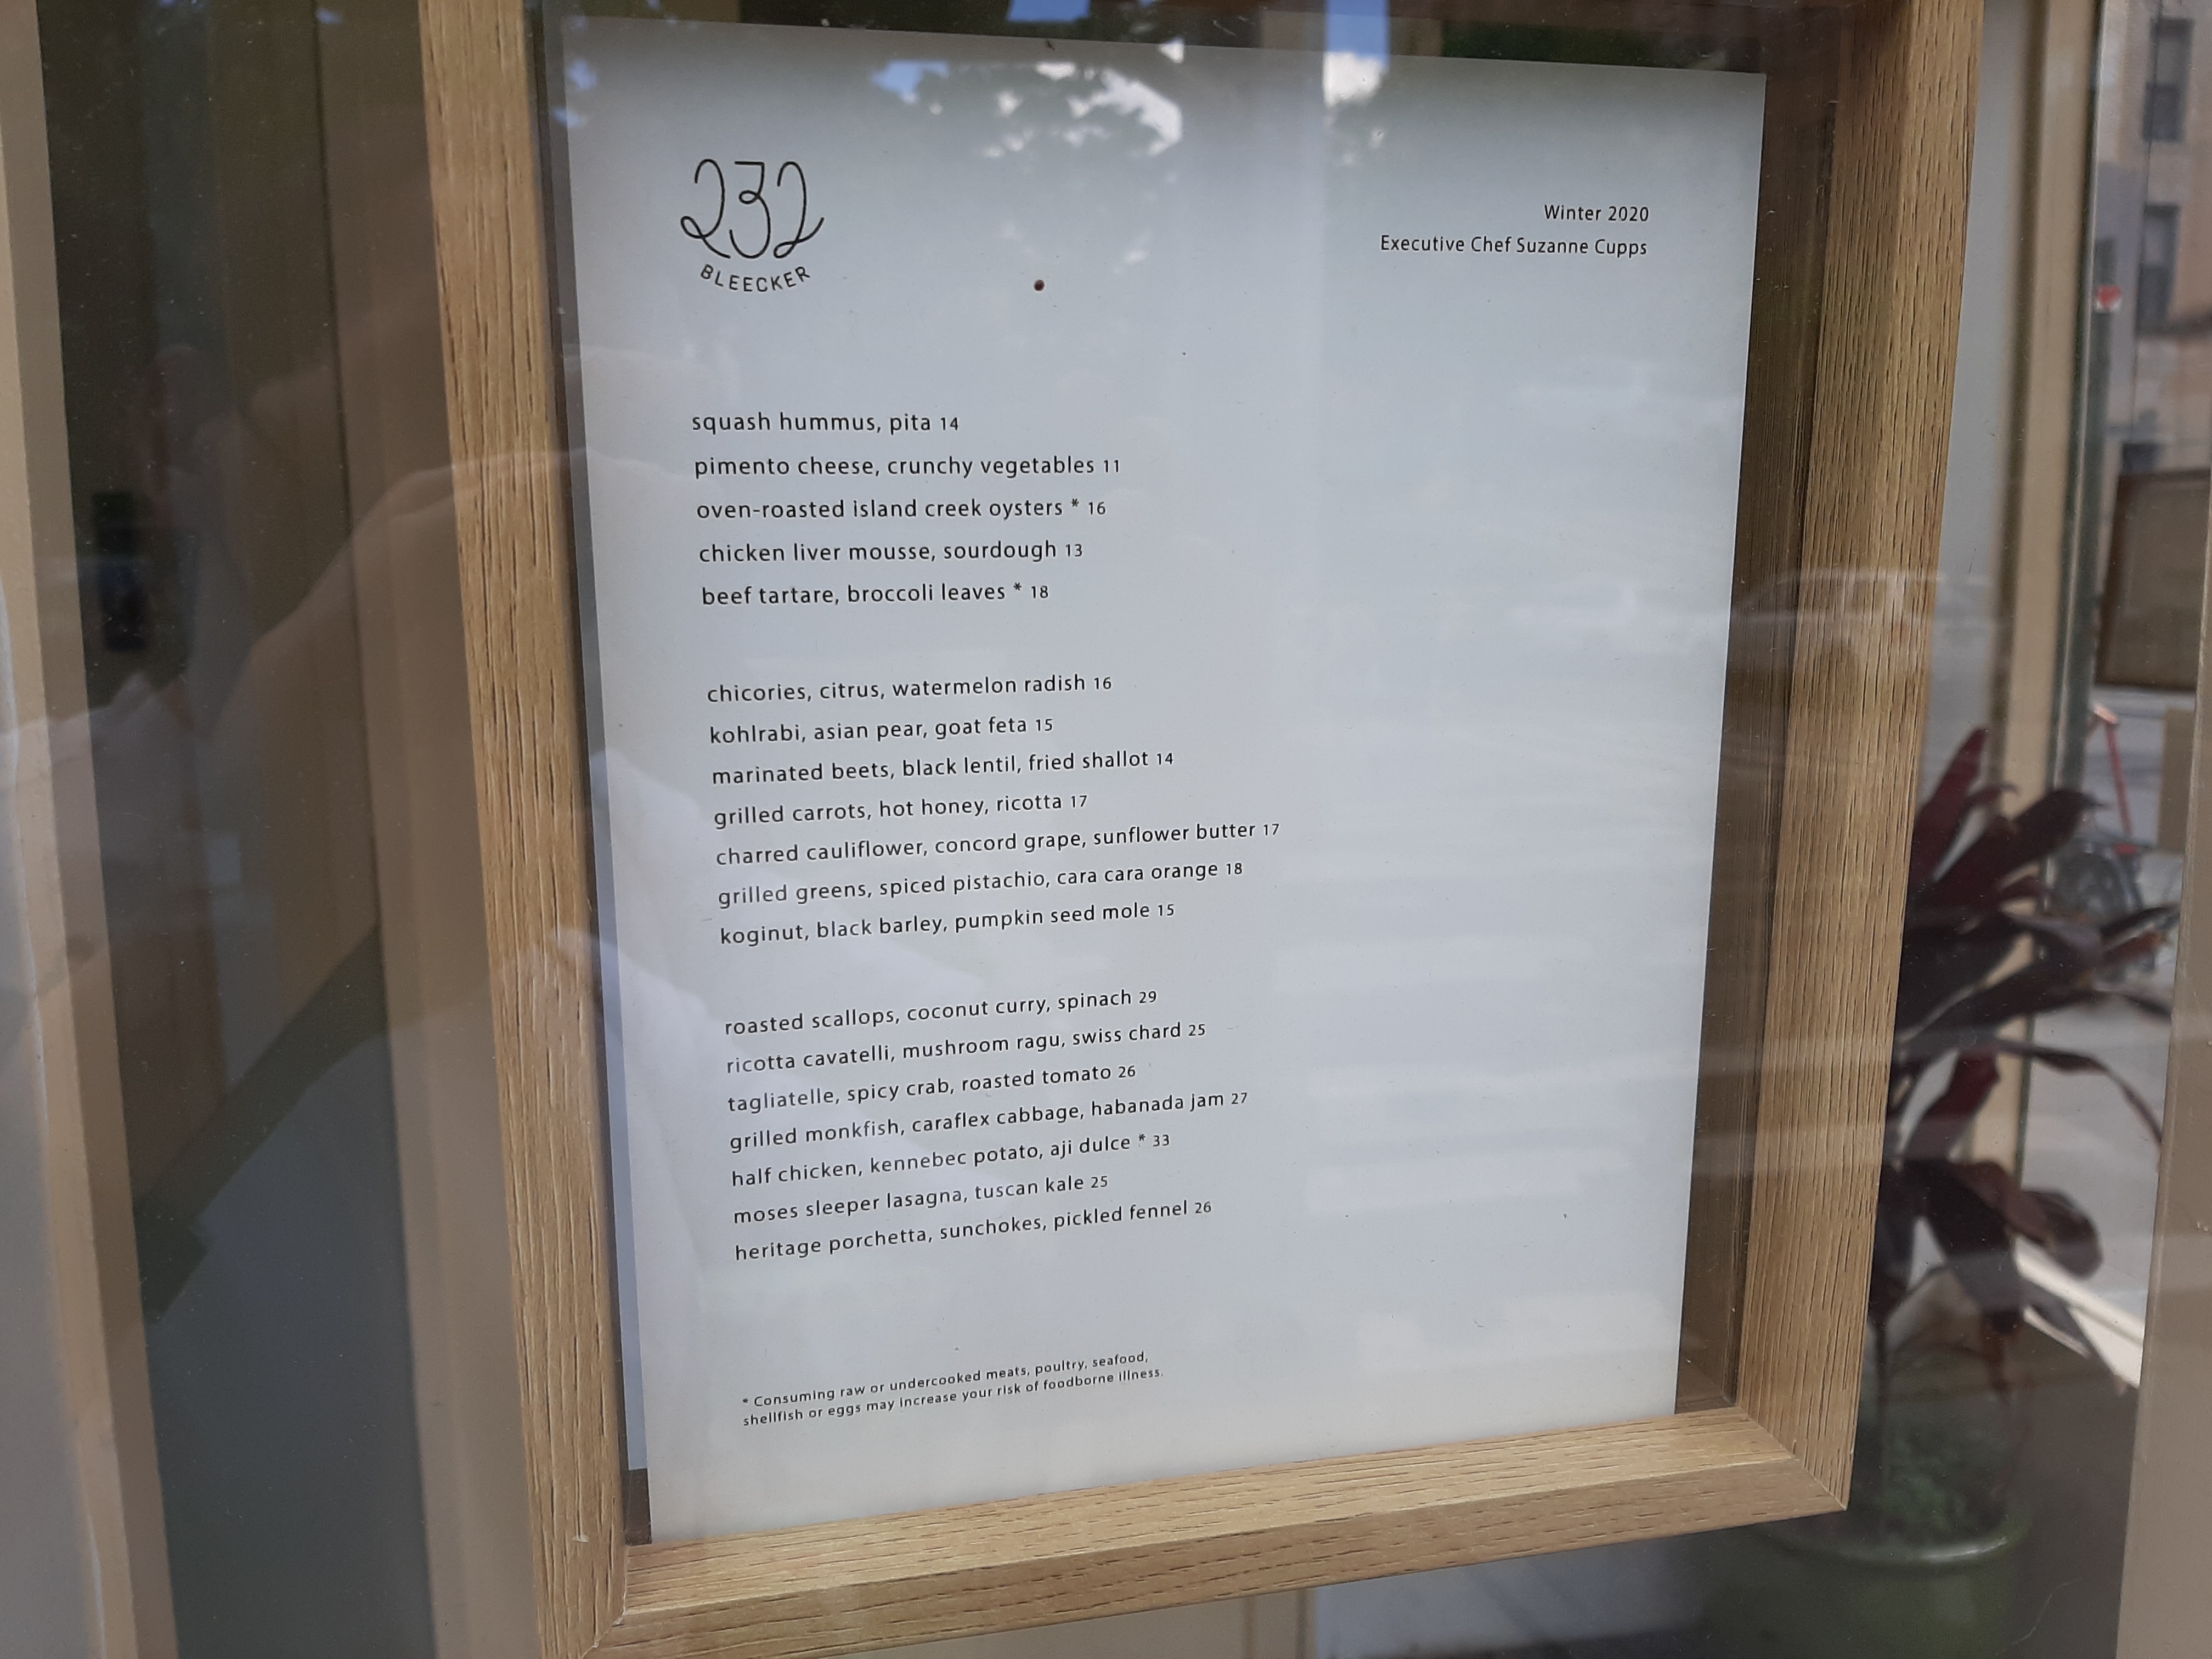 232
BLEECKER
Winter 2020
Executive Chef Suzanne Cupps
squash hummus, pita 14
pimento cheese, crunchy vegetables 11
oven-roasted island creek oysters * 16
chicken liver mousse, sourdough 13
beef tartare, broccoli leaves * 18
chicories, citrus, watermelon radish 16
kohlrabi, asian pear, goat feta 15
marinated beets, black lentil, fried shallot 14
grilled carrots, hot honey, ricotta 17
charred cauliflower, concord grape, sunflower butter 17
grilled greens, spiced pistachio, cara cara orange 18
koginut, black barley, pumpkin seed mole 15
roasted scallops, coconut curry, spinach 29
ricotta cavatelli, mushroom ragu, swiss chard 25
tagliatelle, spicy crab, roasted tomato 26
grilled monkfish, caraflex cabbage, habanada jam 27
half chicken, kennebec potato, aji dulce * 33
moses sleeper lasagna, tuscan kale 25
heritage porchetta, sunchokes, pickled fennel 26
* Consuming raw or undercooked meats, poultry, seafood,
shellfish or eggs may increase your risk of foodborne illness.